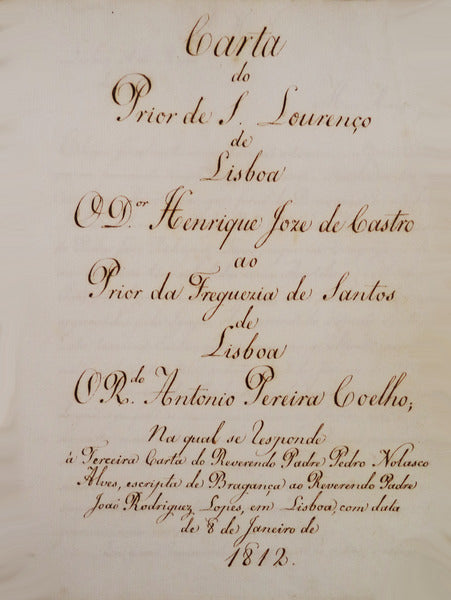 Carta
do
Prior de S. Lourenço
de
Lisboa
O D.or Henrique Joze de Castro
ao
Prior da Freguezia de Santos
de
Lisboa
O R.do Antonio Pereira Coelho;
Na qual se responde
á Terceira Carta do Reverendo Padre Pedro Nolasco
Alves, escripta de Bragança ao Reverendo Padre
João Rodriguez Lopes, em Lisboa, com data
de 8 de Janeiro de
1812.